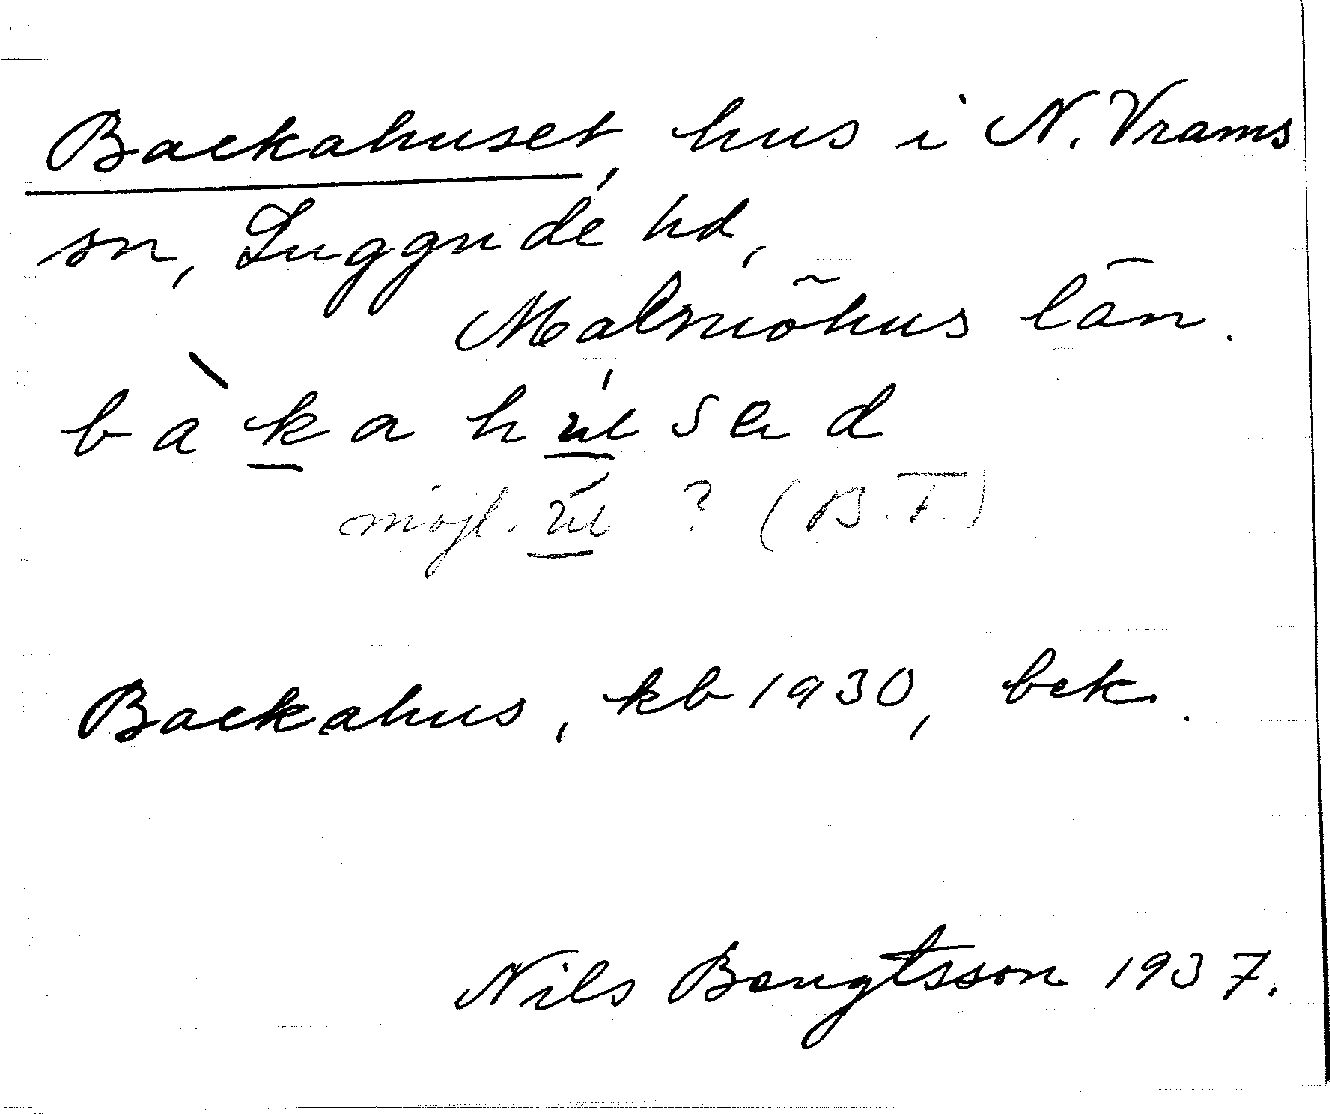 Backahuset, hus i N. Vrams
sn, Luggude hd,
Malmöhus län.
bàkahúsəd
möjl. ú ? (B.T.)
Backahus, kb 1930, bek.
Nils Bengtsson 1937.